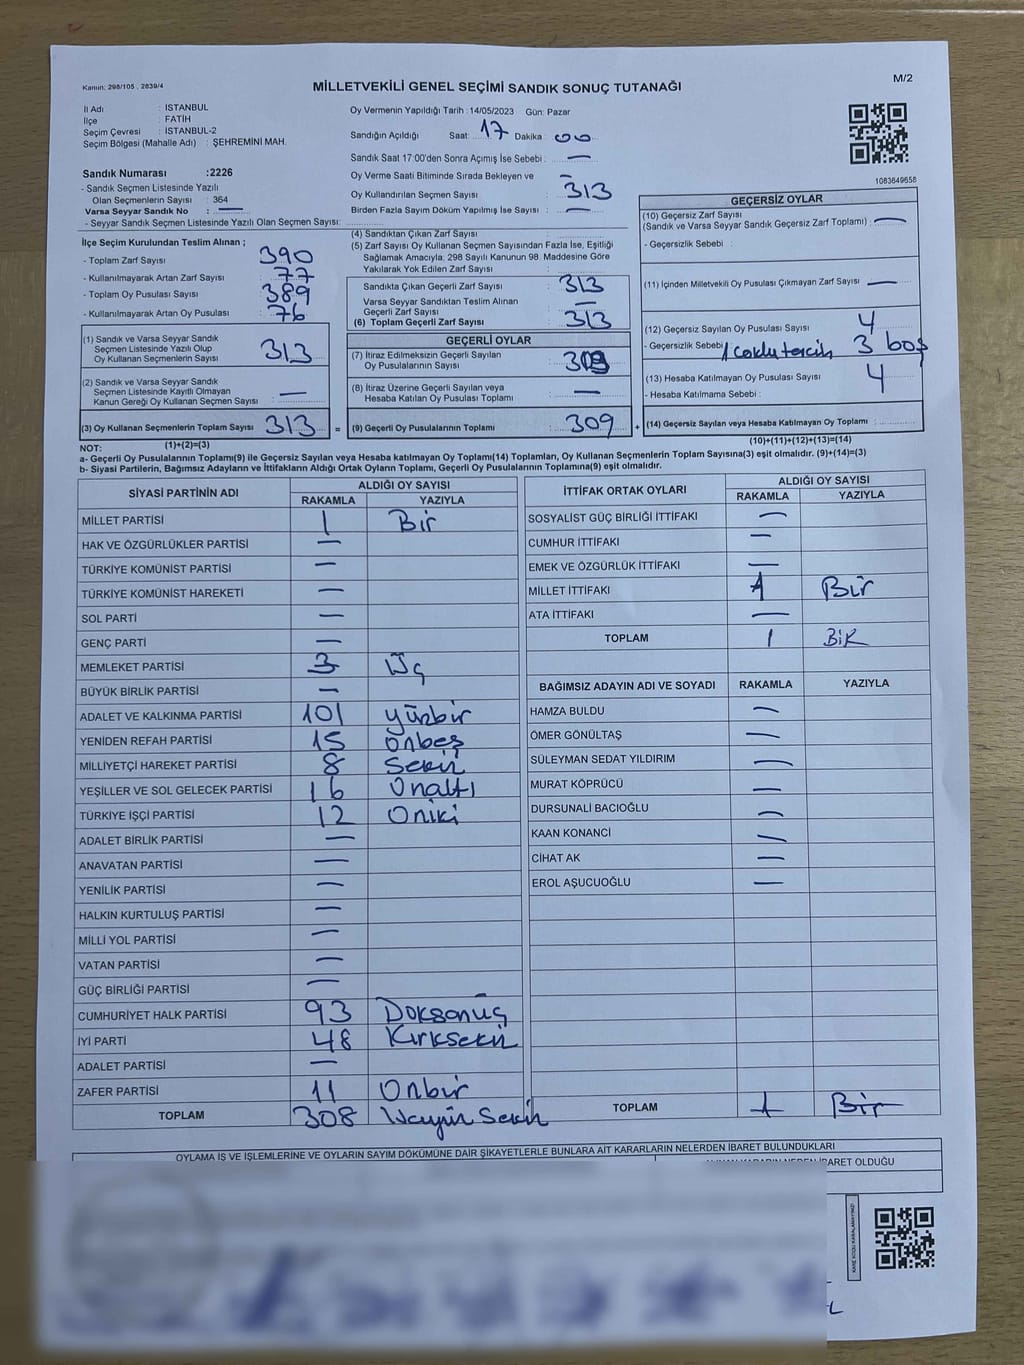 Kanun: 298/105 , 2839/4
MİLLETVEKİLİ GENEL SEÇİMİ SANDIK SONUÇ TUTANAĞI
M/2
İl Adı : İSTANBUL
İlçe : FATİH
Seçim Çevresi : İSTANBUL-2
Seçim Bölgesi (Mahalle Adı) : ŞEHREMİNİ MAH.
Sandık Numarası :2226
- Sandık Seçmen Listesinde Yazılı
Olan Seçmenlerin Sayısı : 364
Varsa Seyyar Sandık No : —
- Seyyar Sandık Seçmen Listesinde Yazılı Olan Seçmen Sayısı:
Oy Vermenin Yapıldığı Tarih : 14/05/2023 Gün: Pazar
Sandığın Açıldığı Saat: 17 Dakika 00
Sandık Saat 17:00'den Sonra Açımış İse Sebebi : —
Oy Verme Saati Bitiminde Sırada Bekleyen ve —
Oy Kullandırılan Seçmen Sayısı : 313
Birden Fazla Sayım Döküm Yapılmış İse Sayısı : —
1083649658
İlçe Seçim Kurulundan Teslim Alınan ;
- Toplam Zarf Sayısı : 390
- Kullanılmayarak Artan Zarf Sayısı : 77
- Toplam Oy Pusulası Sayısı : 389
- Kullanılmayarak Artan Oy Pusulası : 76
(1) Sandık ve Varsa Seyyar Sandık
Seçmen Listesinde Yazılı Olup
Oy Kullanan Seçmenlerin Sayısı : 313
(2) Sandık ve Varsa Seyyar Sandık
Seçmen Listesinde Kayıtlı Olmayan
Kanun Gereği Oy Kullanan Seçmen Sayısı : —
(3) Oy Kullanan Seçmenlerin Toplam Sayısı : 313 =
(4) Sandıktan Çıkan Zarf Sayısı :
(5) Zarf Sayısı Oy Kullanan Seçmen Sayısından Fazla İse, Eşitliği
Sağlamak Amacıyla; 298 Sayılı Kanunun 98. Maddesine Göre
Yakılarak Yok Edilen Zarf Sayısı :
Sandıkta Çıkan Geçerli Zarf Sayısı : 313
Varsa Seyyar Sandıktan Teslim Alınan
Geçerli Zarf Sayısı : —
(6) Toplam Geçerli Zarf Sayısı : 313
GEÇERLİ OYLAR
(7) İtiraz Edilmeksizin Geçerli Sayılan
Oy Pusulalarının Sayısı : 309
(8) İtiraz Üzerine Geçerli Sayılan veya
Hesaba Katılan Oy Pusulası Toplamı : —
(9) Geçerli Oy Pusulalarının Toplamı : 309 +
GEÇERSİZ OYLAR
(10) Geçersiz Zarf Sayısı
(Sandık ve Varsa Seyyar Sandık Geçersiz Zarf Toplamı) : —
- Geçersizlik Sebebi :
(11) İçinden Milletvekili Oy Pusulası Çıkmayan Zarf Sayısı : —
(12) Geçersiz Sayılan Oy Pusulası Sayısı : 4
- Geçersizlik Sebebi : 1 çoklu tercih 3 boş
(13) Hesaba Katılmayan Oy Pusulası Sayısı : 4
- Hesaba Katılmama Sebebi :
(14) Geçersiz Sayılan veya Hesaba Katılmayan Oy Toplamı :
NOT: (1)+(2)=(3)
(10)+(11)+(12)+(13)=(14)
a- Geçerli Oy Pusulalarının Toplamı(9) ile Geçersiz Sayılan veya Hesaba katılmayan Oy Toplamı(14) Toplamları, Oy Kullanan Seçmenlerin Toplam Sayısına(3) eşit olmalıdır. (9)+(14)=(3)
b- Siyasi Partilerin, Bağımsız Adayların ve İttifakların Aldığı Ortak Oyların Toplamı, Geçerli Oy Pusulalarının Toplamına(9) eşit olmalıdır.
SİYASİ PARTİNİN ADI
ALDIĞI OY SAYISI
RAKAMLA YAZIYLA
MİLLET PARTİSİ 1 Bir
HAK VE ÖZGÜRLÜKLER PARTİSİ —
TÜRKİYE KOMÜNİST PARTİSİ —
TÜRKİYE KOMÜNİST HAREKETİ —
SOL PARTİ —
GENÇ PARTİ —
MEMLEKET PARTİSİ 3 Üç
BÜYÜK BİRLİK PARTİSİ —
ADALET VE KALKINMA PARTİSİ 101 yüzbir
YENİDEN REFAH PARTİSİ 15 onbeş
MİLLİYETÇİ HAREKET PARTİSİ 8 Sekiz
YEŞİLLER VE SOL GELECEK PARTİSİ 16 Onaltı
TÜRKİYE İŞÇİ PARTİSİ 12 Oniki
ADALET BİRLİK PARTİSİ —
ANAVATAN PARTİSİ —
YENİLİK PARTİSİ —
HALKIN KURTULUŞ PARTİSİ —
MİLLİ YOL PARTİSİ —
VATAN PARTİSİ —
GÜÇ BİRLİĞİ PARTİSİ —
CUMHURİYET HALK PARTİSİ 93 Doksanüç
İYİ PARTİ 48 Kırksekiz
ADALET PARTİSİ —
ZAFER PARTİSİ 11 Onbir
TOPLAM 308 Üçyüz Sekiz
İTTİFAK ORTAK OYLARI
ALDIĞI OY SAYISI
RAKAMLA YAZIYLA
SOSYALİST GÜÇ BİRLİĞİ İTTİFAKI —
CUMHUR İTTİFAKI —
EMEK VE ÖZGÜRLÜK İTTİFAKI —
MİLLET İTTİFAKI 1 Bir
ATA İTTİFAKI —
TOPLAM 1 BİR
BAĞIMSIZ ADAYIN ADI VE SOYADI RAKAMLA YAZIYLA
HAMZA BULDU —
ÖMER GÖNÜLTAŞ —
SÜLEYMAN SEDAT YILDIRIM —
MURAT KÖPRÜCÜ —
DURSUNALİ BACIOĞLU —
KAAN KONANCİ —
CİHAT AK —
EROL AŞUCUOĞLU —
TOPLAM 1 Bir
OYLAMA İŞ VE İŞLEMLERİNE VE OYLARIN SAYIM DÖKÜMÜNE DAİR ŞİKAYETLERLE BUNLARA AİT KARARLARIN NELERDEN İBARET BULUNDUKLARI
İBARET OLDUĞU